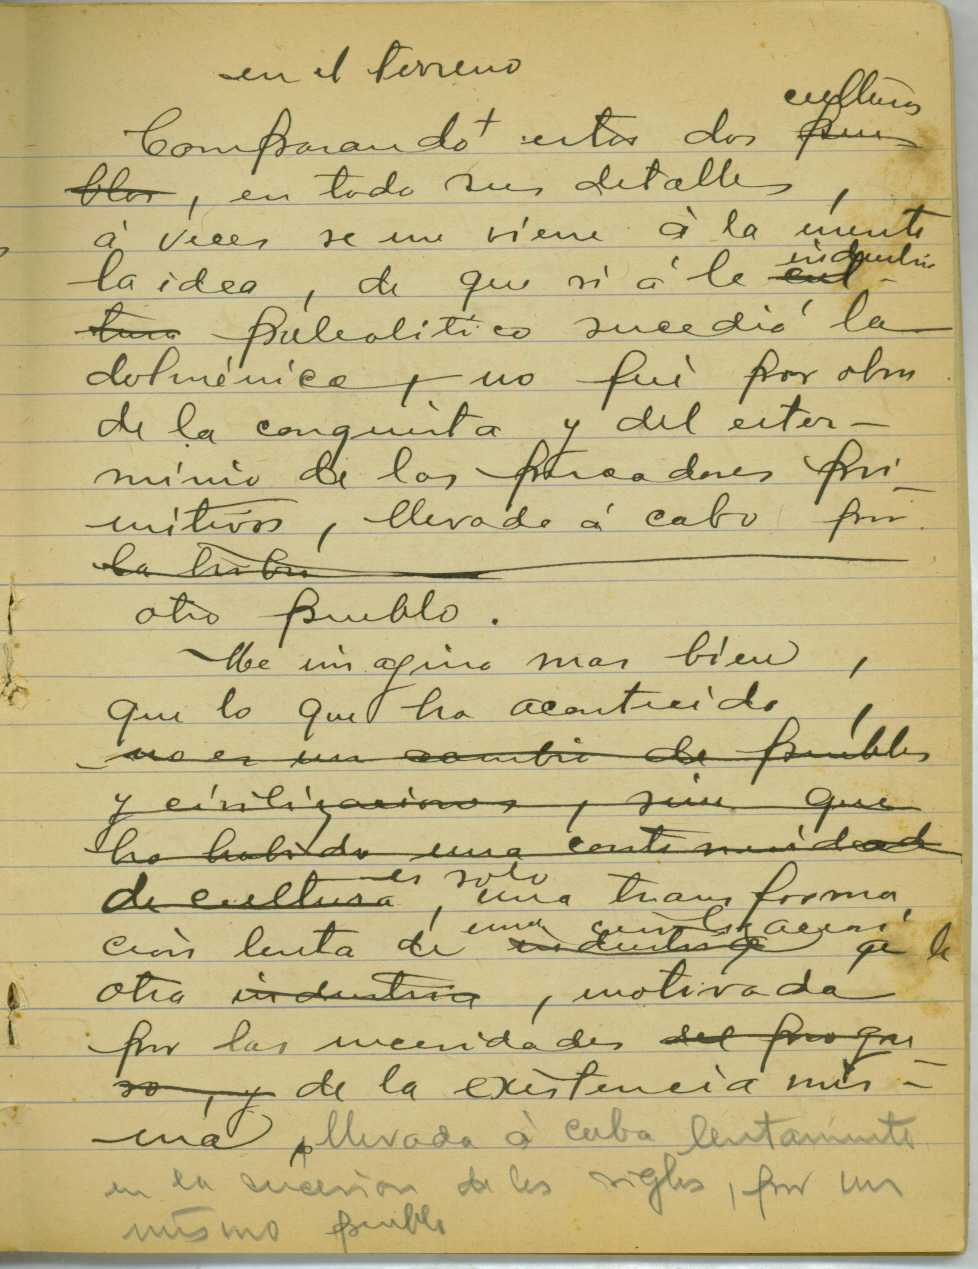 en el terreno
culturas
Comparando + estas dos pue-
blos, en todo sus detalles,
á veces se me viene á la mente
industria
la idea, de que si á la cul-
tura paleolitico sucedió la
dolménica, no fué por obra
de la conquista y del exter-
minio de los pescadores pri-
mitivos, llevada á cabo por
la tribu
otro pueblo.
Me imagino mas bien,
que lo que ha acontecido,
no es un cambio de pueblos
y civilizaciones, sino que
ha habido una continuidad
es solo
de cultura, una transforma
una civilización
ción lenta de industria á la
otra industria, motivada
por las necesidades del progre
so, y de la existencia mis-
ma, llevada á cabo lentamente
en la sucesion de los siglos, por un
mismo pueblo